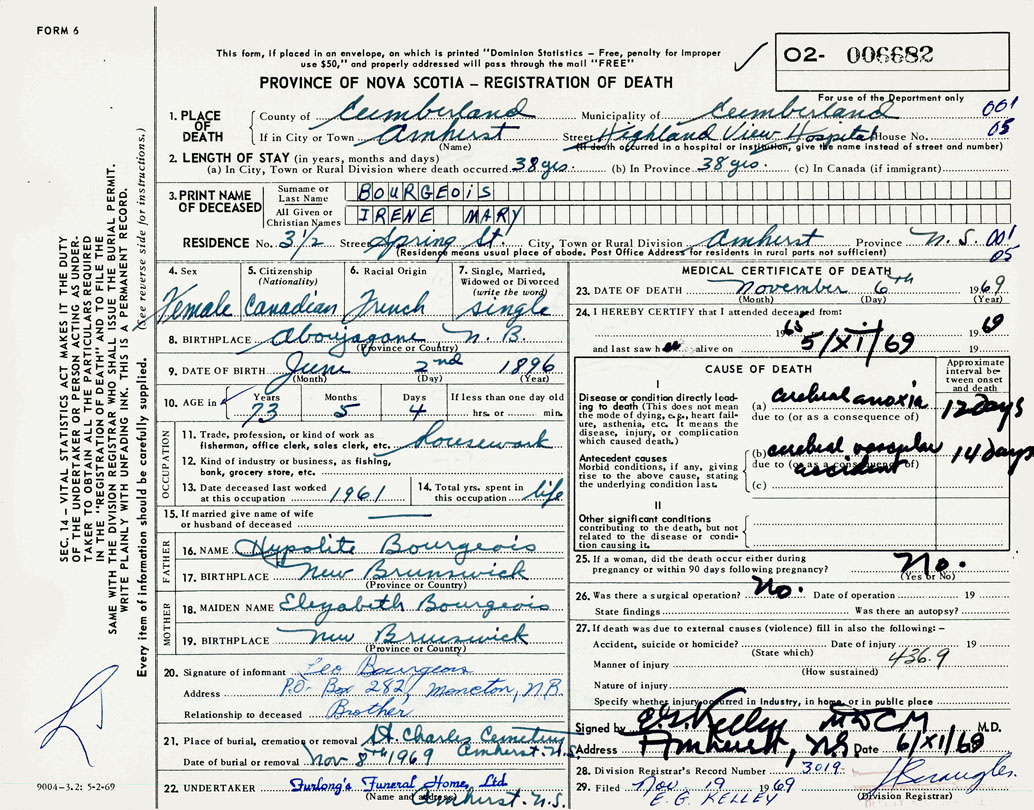 FORM 6
This form, if placed in an envelope, on which is printed "Dominion Statistics – Free, penalty for improper
use $50," and properly addressed will pass through the mail "FREE"
PROVINCE OF NOVA SCOTIA – REGISTRATION OF DEATH
O2- 006682
For use of the Department only
001
05
1. PLACE OF DEATH
County of Cumberland Municipality of Cumberland
If in City or Town Amherst Street Highland View Hospital House No.
(Name) (If death occurred in a hospital or institution, give the name instead of street and number)
2. LENGTH OF STAY (in years, months and days)
(a) In City, Town or Rural Division where death occurred 38 yrs. (b) In Province 38 yrs. (c) In Canada (if immigrant)
3. PRINT NAME OF DECEASED
Surname or Last Name BOURGEOIS
All Given or Christian Names IRENE MARY
RESIDENCE No. 3 1/2 Street Spring St. City, Town or Rural Division Amherst Province N.S. 001
05
(Residence means usual place of abode. Post Office Address for residents in rural parts not sufficient)
4. Sex Female
5. Citizenship (Nationality) Canadian
6. Racial Origin French
7. Single, Married, Widowed or Divorced (write the word) single
8. BIRTHPLACE Aboujagane N.B.
(Province or Country)
9. DATE OF BIRTH June 2nd 1896
(Month) (Day) (Year)
10. AGE in Years 73 Months 5 Days 4 If less than one day old
hrs. or min.
OCCUPATION
11. Trade, profession, or kind of work as
fisherman, office clerk, sales clerk, etc. housework
12. Kind of industry or business, as fishing,
bank, grocery store, etc.
13. Date deceased last worked
at this occupation 1961
14. Total yrs. spent in
this occupation life
15. If married give name of wife
or husband of deceased
FATHER
16. NAME Hypolite Bourgeois
17. BIRTHPLACE New Brunswick
(Province or Country)
MOTHER
18. MAIDEN NAME Elizabeth Bourgeois
19. BIRTHPLACE New Brunswick
(Province or Country)
20. Signature of informant Leo Bourgeois
Address P.O. Box 282, Moncton, N.B.
Relationship to deceased Brother
21. Place of burial, cremation or removal St. Charles Cemetery
Amherst N.S.
Date of burial or removal Nov 8th 1969
22. UNDERTAKER Furlong's Funeral Home, Ltd
(Name and address) Amherst. N.S.
MEDICAL CERTIFICATE OF DEATH
23. DATE OF DEATH November 6th 1969
(Month) (Day) (Year)
24. I HEREBY CERTIFY that I attended deceased from:
19 69
and last saw her alive on 5/XI/69 19
CAUSE OF DEATH
Approximate interval between onset and death
I
Disease or condition directly leading
to death (This does not
mean the mode of dying, e.g., heart failure,
asthenia, etc. It means the
disease, injury, or complication
which caused death.)
(a) cerebral anoxia 12 days
due to (or as a consequence of)
Antecedent causes
Morbid conditions, if any, giving
rise to the above cause, stating
the underlying condition last.
(b) cerebral vascular accident 14 days
due to (or as a consequence of)
(c)
II
Other significant conditions
contributing to the death, but not
related to the disease or condition
causing it.
25. If a woman, did the death occur either during
pregnancy or within 90 days following pregnancy? No.
(Yes or No)
26. Was there a surgical operation? No. Date of operation 19
State findings Was there an autopsy?
27. If death was due to external causes (violence) fill in also the following: –
Accident, suicide or homicide? Date of injury 19
(State which)
436.9
Manner of injury
(How sustained)
Nature of injury
Specify whether injury occurred in Industry, in home, or in public place
Signed by E.G. Kelley MDCM M.D.
Address Amherst, NS Date 6/XI/69
28. Division Registrar's Record Number 3019
29. Filed Nov. 19 1969
E. G. KELLEY
(Division Registrar)
SEC. 14 – VITAL STATISTICS ACT MAKES IT THE DUTY
OF THE UNDERTAKER OR PERSON ACTING AS UNDER-
TAKER TO OBTAIN ALL THE PARTICULARS REQUIRED
IN THE "REGISTRATION OF DEATH" AND TO FILE THE
SAME WITH THE DIVISION REGISTRAR WHO SHALL ISSUE THE BURIAL PERMIT.
WRITE PLAINLY WITH UNFADING INK. THIS IS A PERMANENT RECORD.
Every item of information should be carefully supplied. (See reverse side for instructions.)
9004-3.2: 5-2-69